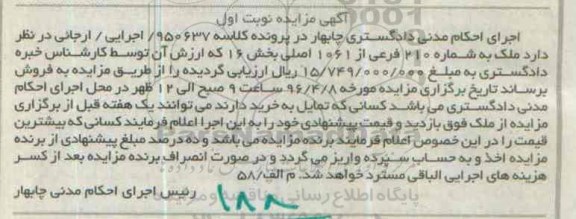 آگهی مزایده نوبت اول
اجرای احکام مدنی دادگستری چابهار در پرونده کلاسه ۹۵۰۶۳۷/ اجرایی / ارجائی در نظر
دارد ملک به شماره ۲۱۰ فرعی از ۱۰۶۱ اصلی بخش ۱۶ که ارزش آن توسط کارشناس خبره
دادگستری به مبلغ ۱۵/۷۴۹/۰۰۰/۰۰۰ ریال ارزیابی گردیده را از طریق مزایده به فروش
برساند تاریخ برگزاری مزایده مورخه ۹۶/۴/۸ ساعت ۹ صبح الی ۱۲ ظهر در محل اجرای احکام
مدنی دادگستری می باشد کسانی که تمایل به خرید دارند می توانند یک هفته قبل از برگزاری
مزایده از ملک فوق بازدید و قیمت پیشنهادی خود را به این اجرا اعلام فرمایند کسانی که بیشترین
قیمت را در این خصوص اعلام فرمایند برنده مزایده می باشد و ده درصد مبلغ پیشنهادی از برنده
مزایده اخذ و به حساب سپرده واریز می گردد و در صورت انصراف برنده مزایده بعد از کسر
هزینه های اجرایی الباقی مسترد خواهد شد. م الف/۵۸
رئیس اجرای احکام مدنی چابهار
۱۸۸